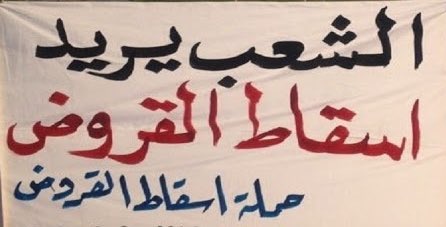 الشعب يريد
اسقاط القروض
حملة اسقاط القروض